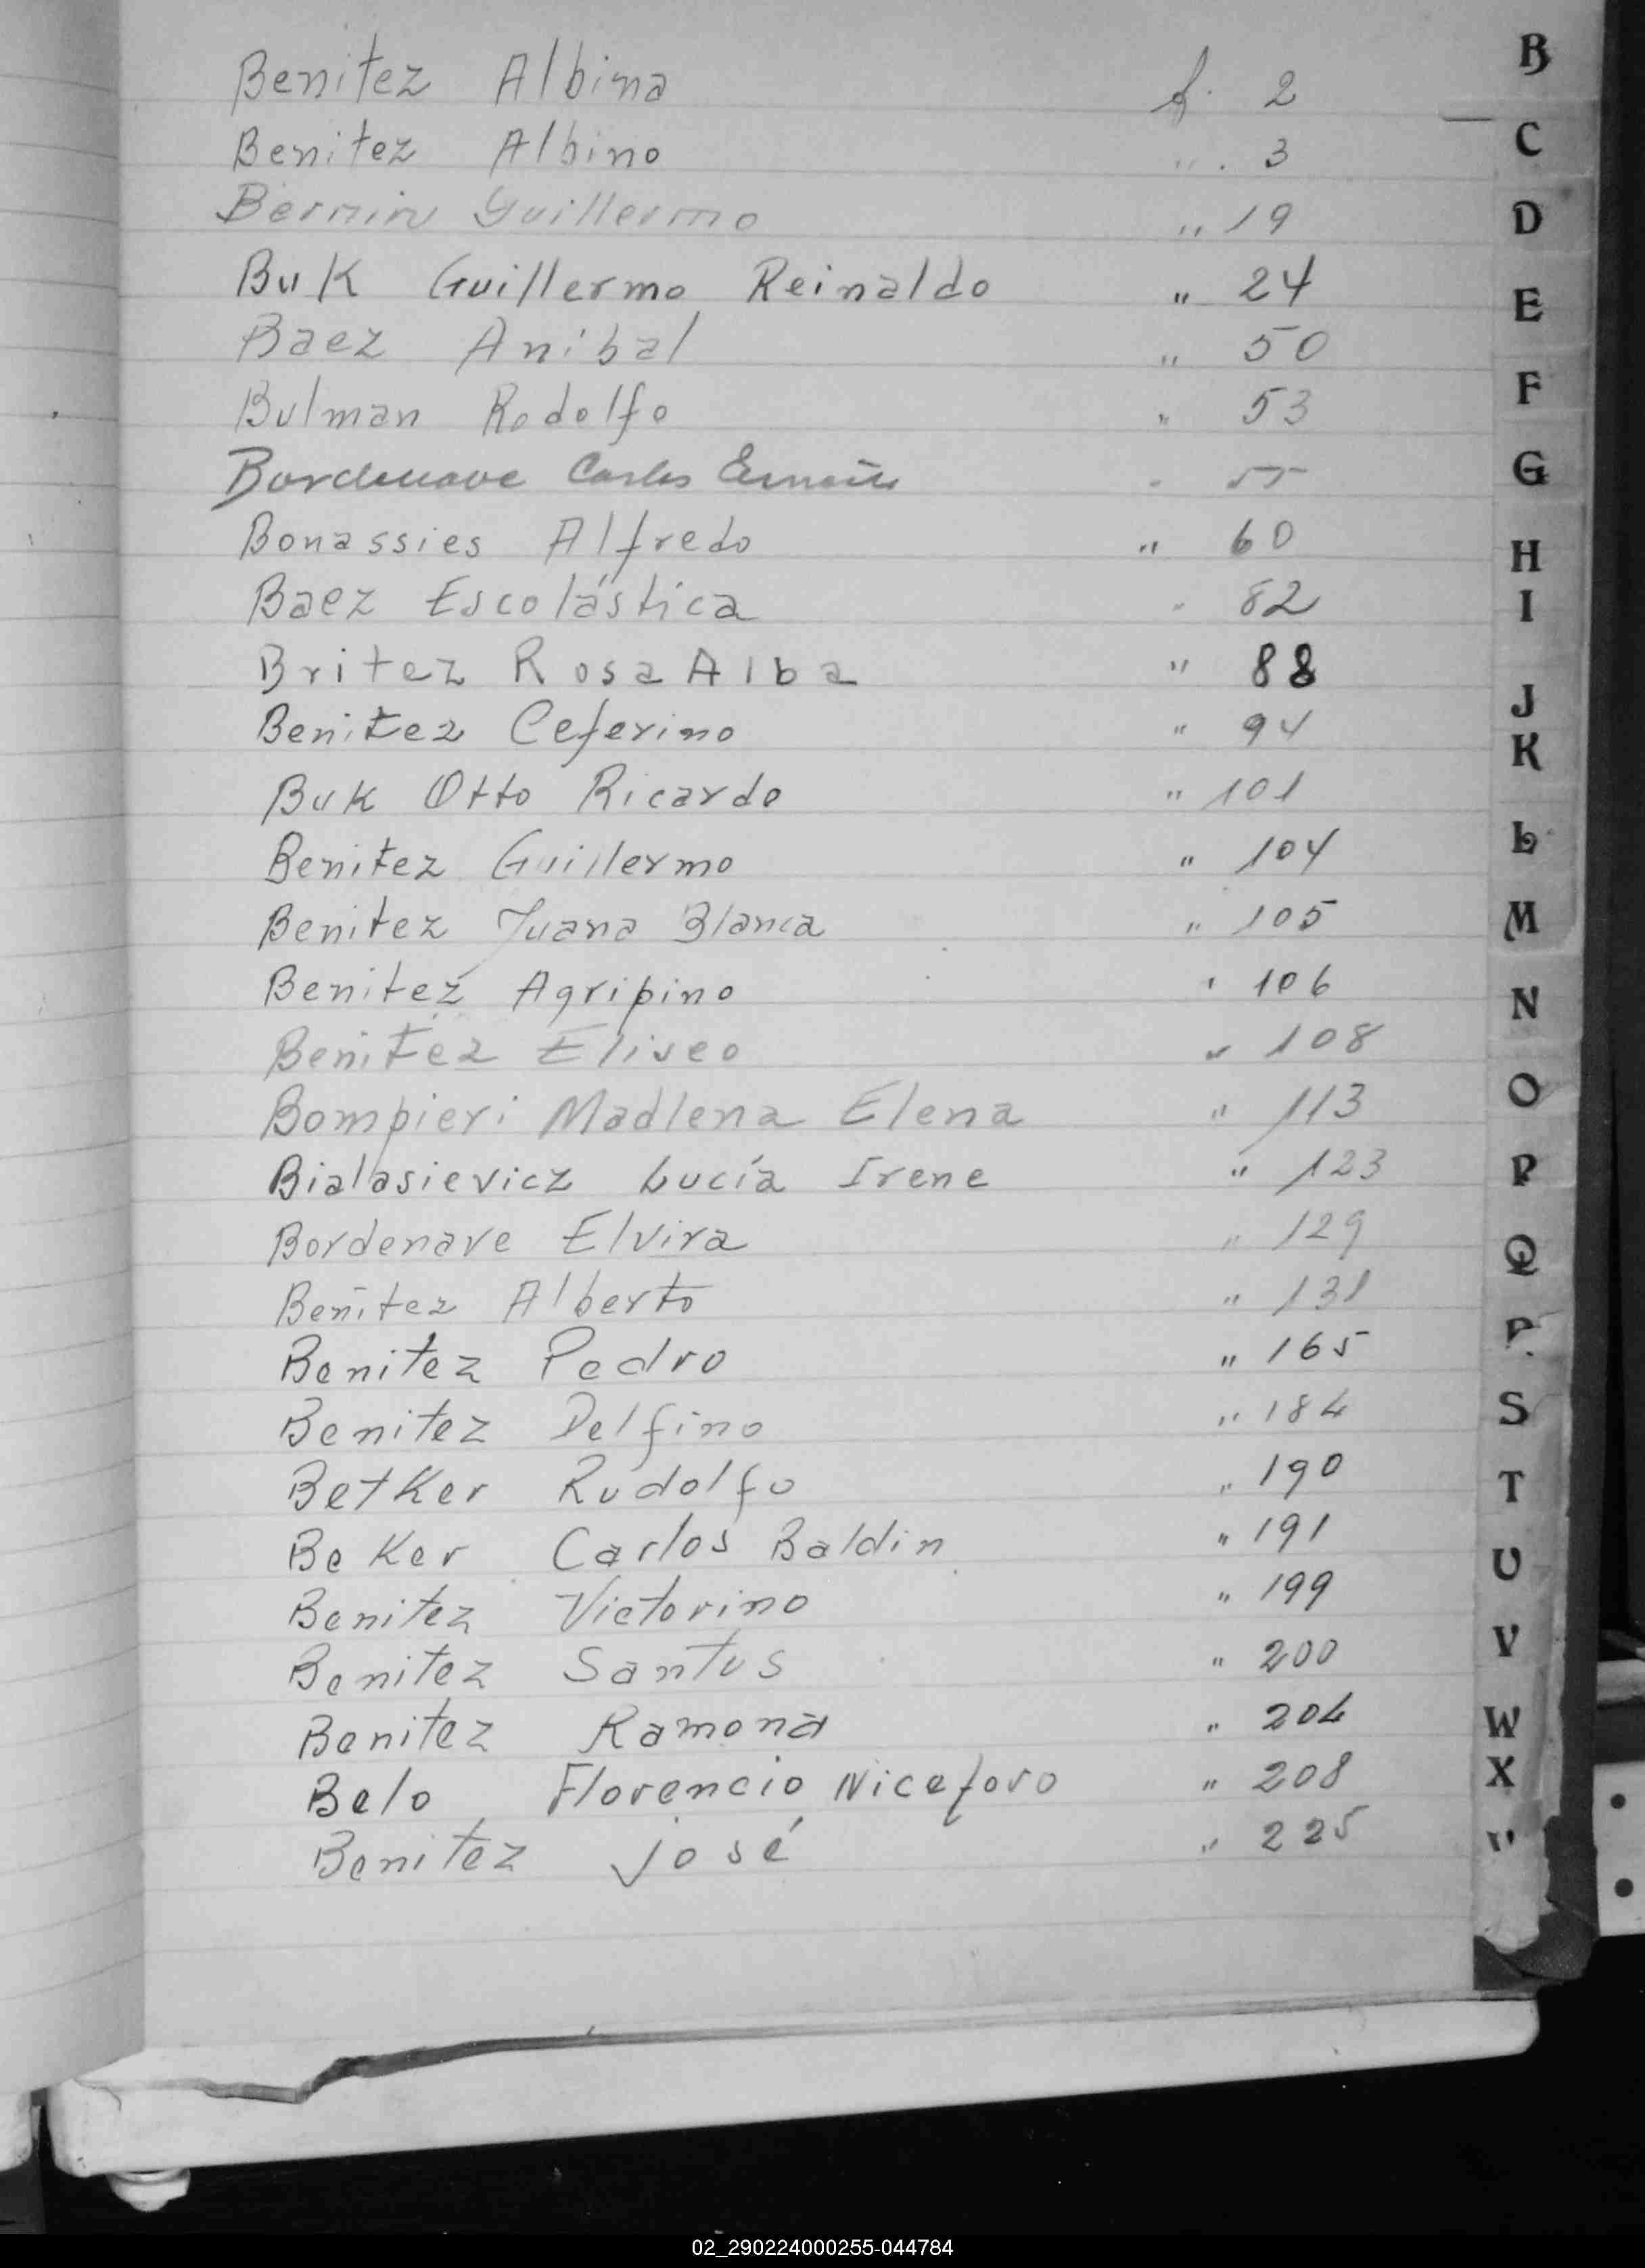 Benitez Albina f. 2
Benitez Albino " . 3
Bernin Guillermo " 19
Buk Guillermo Reinaldo " 24
Baez Anibal " 50
Bulman Rodolfo " 53
Bordenave Carlos " 55
Bonassies Alfredo " 60
Baez Escolástica " 82
Britez Rosa Alba " 88
Benitez Ceferino " 94
Buk Otto Ricardo " 101
Benitez Guillermo " 104
Benitez Juana Blanca " 105
Benitez Agripino " 106
Benitez Eliseo " 108
Bompieri Madlena Elena " 113
Bialasievicz Lucía Irene " 123
Bordenave Elvira " 129
Benitez Alberto " 131
Benitez Pedro " 165
Benitez Delfino " 184
Betker Rudolfo " 190
Beker Carlos Baldin " 191
Benitez Victorino " 199
Benitez Santos " 200
Benitez Ramona " 204
Belo Florencio Niceforo " 208
Benitez José " 225
B
C
D
E
F
G
H
I
J
K
L
M
N
O
P
Q
S
T
U
V
W
X
02_290224000255-044784